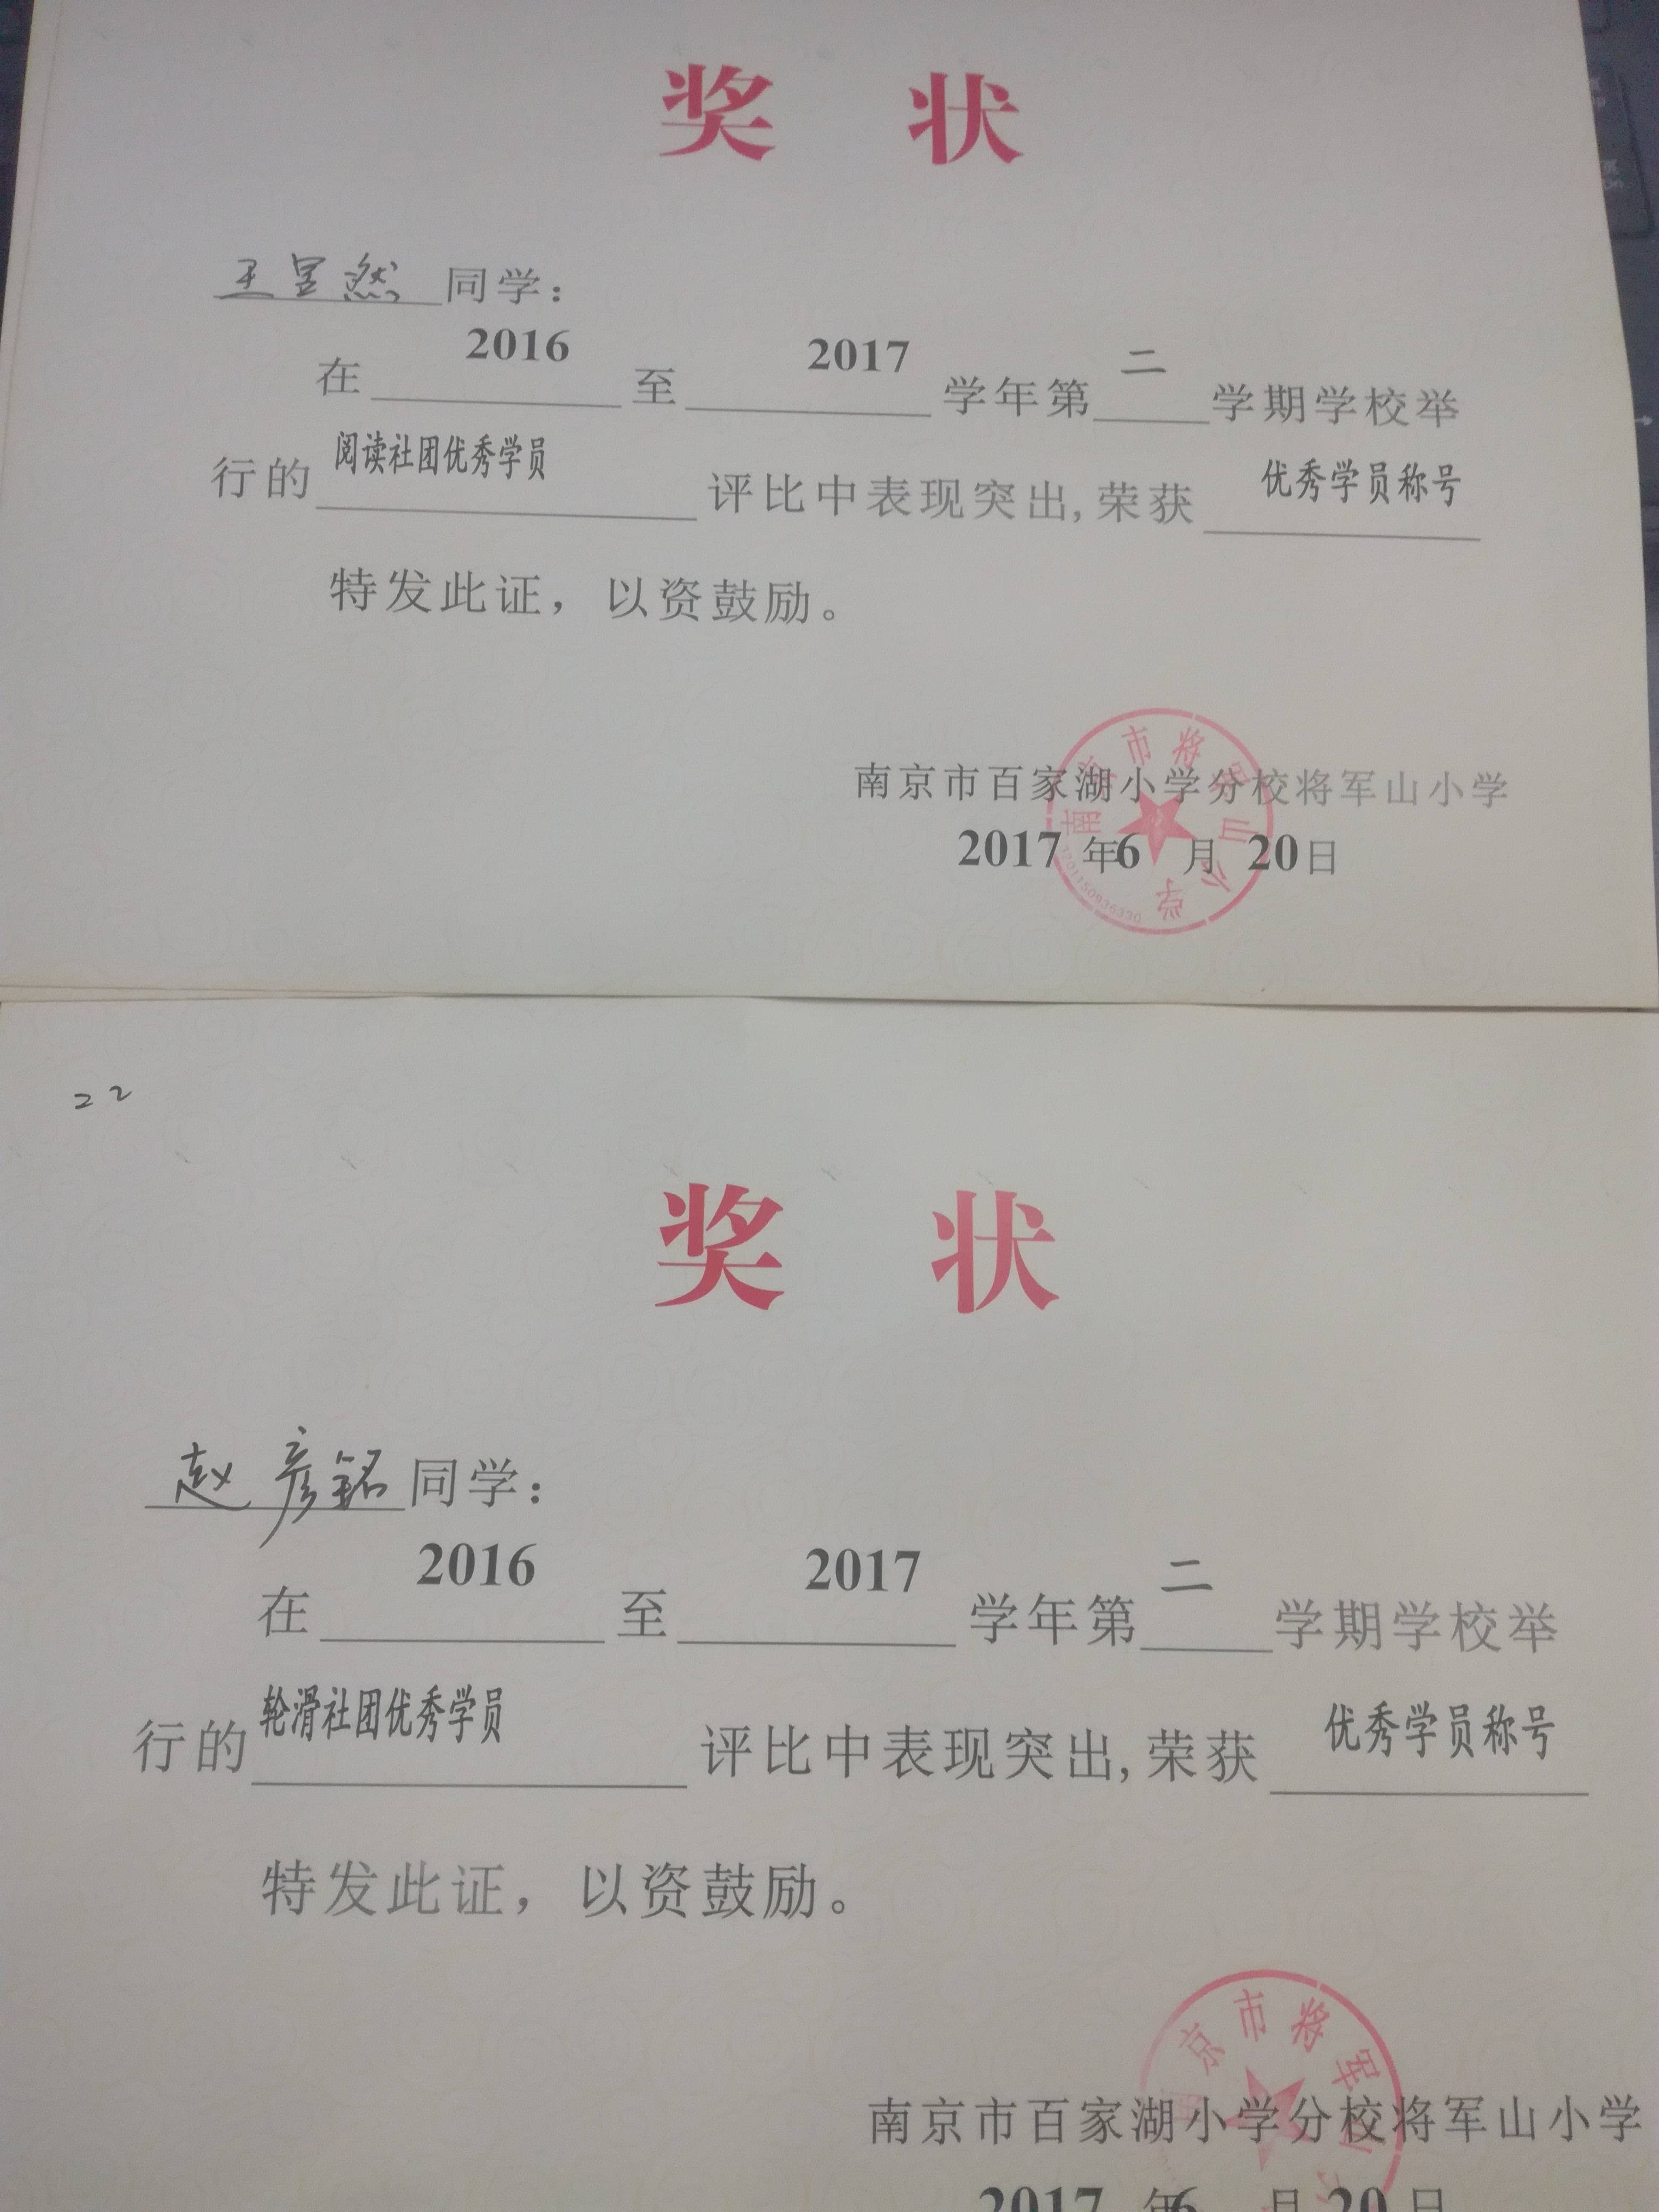 奖 状
王昱然同学：
在 2016 至 2017 学年第 二 学期学校举
行的 阅读社团优秀学员 评比中表现突出,荣获 优秀学员称号
特发此证，以资鼓励。
南京市百家湖小学分校将军山小学
2017 年 6 月 20 日
南京市将军山小学
3201150936330
22
奖 状
赵彦铭同学：
在 2016 至 2017 学年第 二 学期学校举
行的 轮滑社团优秀学员 评比中表现突出,荣获 优秀学员称号
特发此证，以资鼓励。
南京市百家湖小学分校将军山小学
2017 年 6 月 20 日
南京市将军山小